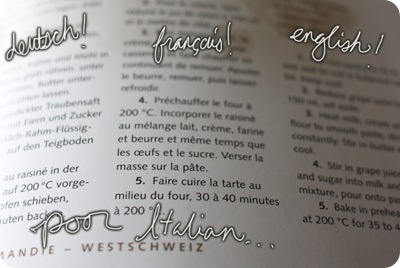 deutsch!
français!
english!
Rahm und Mehl in
pull rühren, unter-
Butter unter-
lassen.
ckter Traubensaft
it Eiern und Zucker
ch-Rahm-Flüssig-
auf den Teigboden
au raisiné in der
auf 200 °C vorge-
ofen schieben,
uten back
continuant de remuer. Ajouter
le beurre, remuer, puis laisser
refroidir.
4. Préchauffer le four à
200 °C. Incorporer le raisiné
au mélange lait, crème, farine
et beurre et même temps que
les œufs et le sucre. Verser la
masse sur la pâte.
5. Faire cuire la tarte au
milieu du four, 30 à 40 minutes
à 200 °
2. Reduce grape
150 ml, set aside.
3. Heat milk, cream and
flour to smooth paste, stir
constantly. Stir in butter,
cool.
4. Stir in grape juice
and sugar into milk and
mixture, pour onto pas
5. Bake in prehea
at 200 °C for 35 to 4
poor Italian...
MANDIE – WESTSCHWEIZ